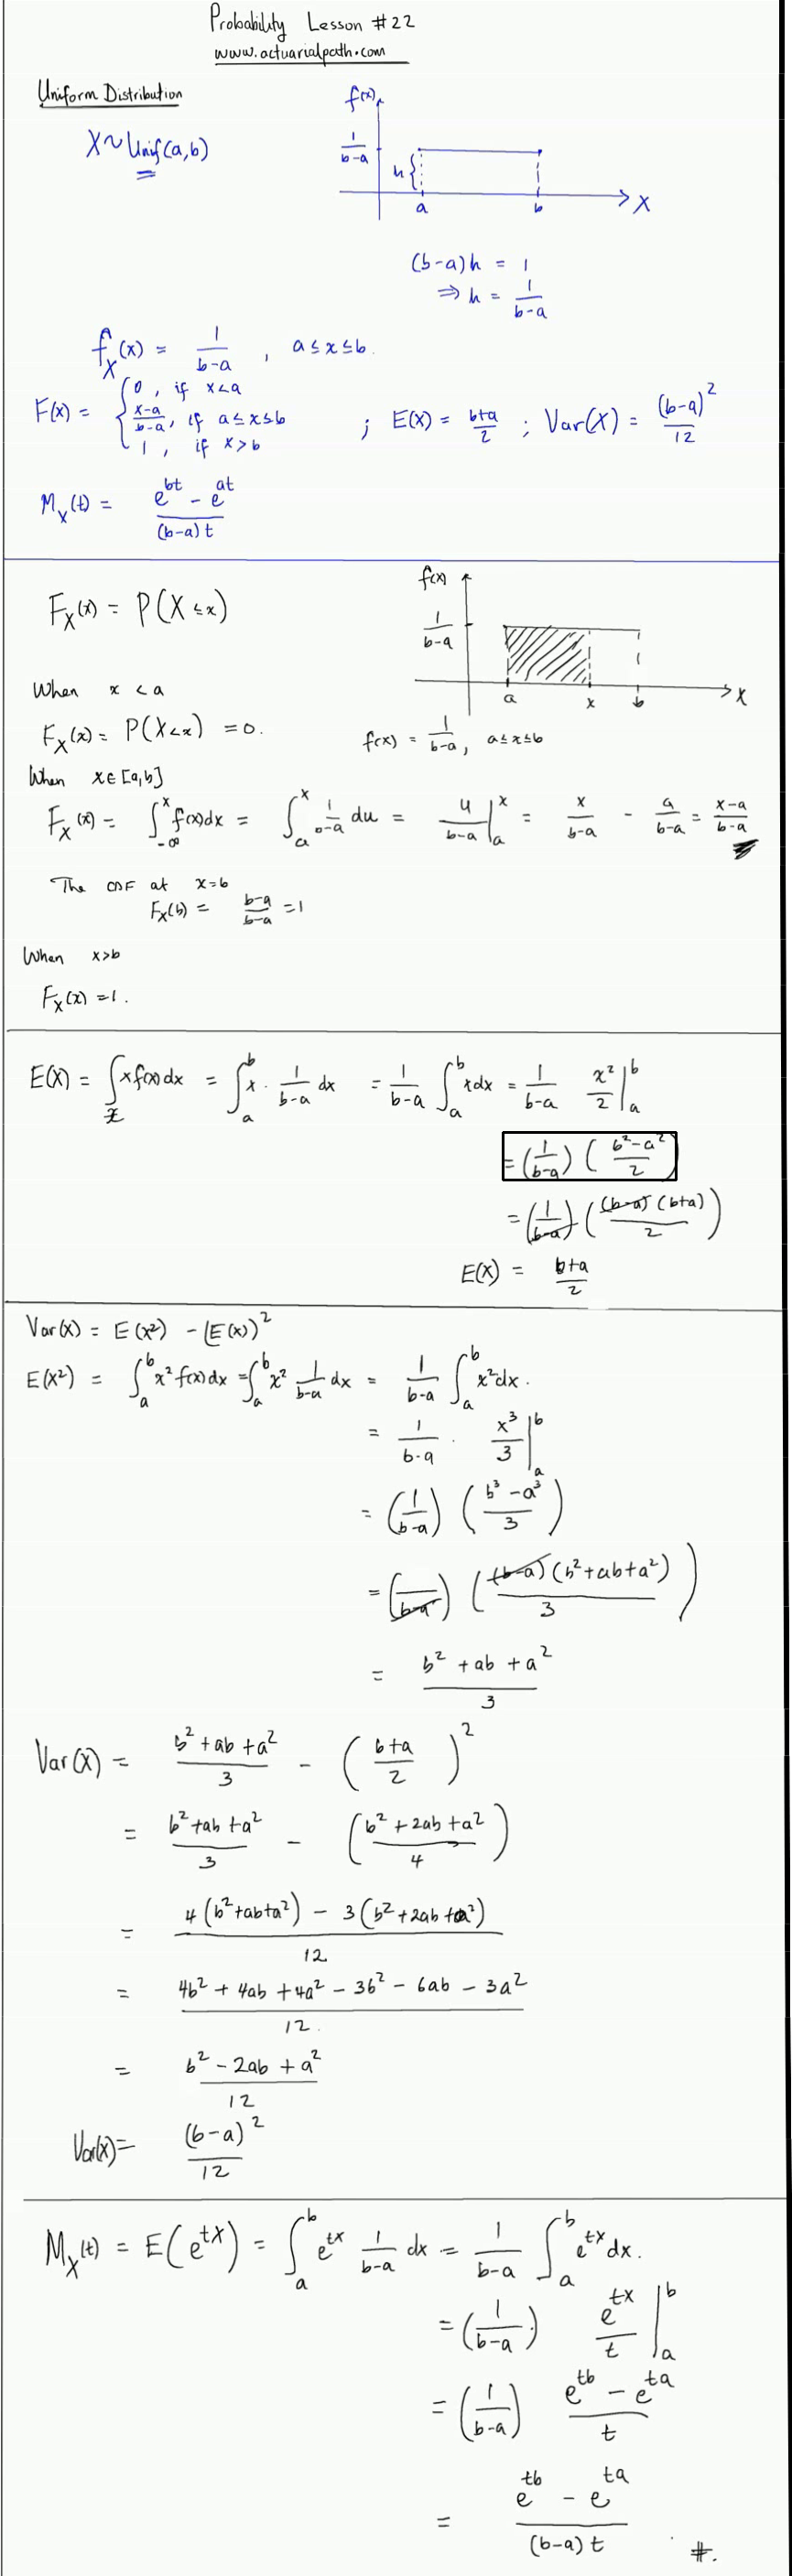 Probability Lesson #22
www.actuarialpath.com
Uniform Distribution
X~Unif(a,b)
f(x)
1/(b-a)
h{
a b X
(b-a)h = 1
⇒ h = 1/(b-a)
f_X(x) = 1/(b-a) , a≤x≤b.
F(x) = { 0, if x<a
(x-a)/(b-a), if a≤x≤b ; E(X) = (b+a)/2 ; Var(X) = (b-a)²/12
1, if x>b
M_X(t) = (e^{bt} - e^{at})/((b-a)t)
F_X(x) = P(X≤x)
f(x)
1/(b-a)
a x b X
f(x) = 1/(b-a), a≤x≤b
When x < a
F_X(x) = P(X<x) = 0.
When x∈[a,b]
F_X(x) = ∫_{-∞}^{x} f(x)dx = ∫_a^x 1/(b-a) du = u/(b-a) |_a^x = x/(b-a) - a/(b-a) = (x-a)/(b-a)
The CDF at x=b
F_X(b) = (b-a)/(b-a) = 1
When x>b
F_X(x) = 1.
E(X) = ∫_x x f(x) dx = ∫_a^b x · 1/(b-a) dx = 1/(b-a) ∫_a^b x dx = 1/(b-a) x²/2 |_a^b
= (1/(b-a)) ((b²-a²)/2)
= (1/(b-a)) ((b-a)(b+a)/2)
E(X) = (b+a)/2
Var(X) = E(X²) - (E(X))²
E(X²) = ∫_a^b x² f(x) dx = ∫_a^b x² 1/(b-a) dx = 1/(b-a) ∫_a^b x² dx.
= 1/(b-a) · x³/3 |_a^b
= (1/(b-a)) ((b³-a³)/3)
= (1/(b-a)) ((b-a)(b²+ab+a²)/3)
= (b²+ab+a²)/3
Var(X) = (b²+ab+a²)/3 - ((b+a)/2)²
= (b²+ab+a²)/3 - ((b²+2ab+a²)/4)
= (4(b²+ab+a²) - 3(b²+2ab+a²))/12
= (4b²+4ab+4a²-3b²-6ab-3a²)/12.
= (b²-2ab+a²)/12
Var(X) = (b-a)²/12
M_X(t) = E(e^{tX}) = ∫_a^b e^{tx} 1/(b-a) dx = 1/(b-a) ∫_a^b e^{tx} dx.
= (1/(b-a)) e^{tx}/t |_a^b
= (1/(b-a)) (e^{tb} - e^{ta})/t
= (e^{tb} - e^{ta})/((b-a)t) #.